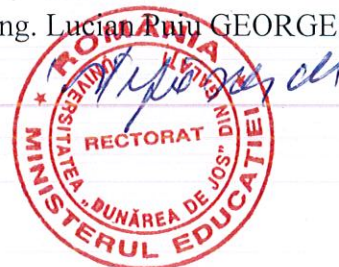 ng. Lucian Puiu GEORGE
ROMÂNIA
MINISTERUL EDUCAȚIEI
UNIVERSITATEA „DUNĂREA DE JOS" DIN GALAȚI
RECTORAT